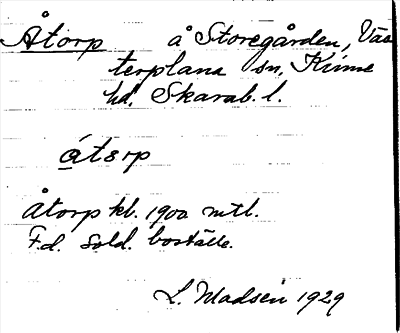 Åtorp å Storegården, Väs
terplana sn, Kinne
hd, Skarab. l.
átɛrp
Åtorp kl. 1900 mtl.
F.d. sold. boställe.
L. Madsén 1929